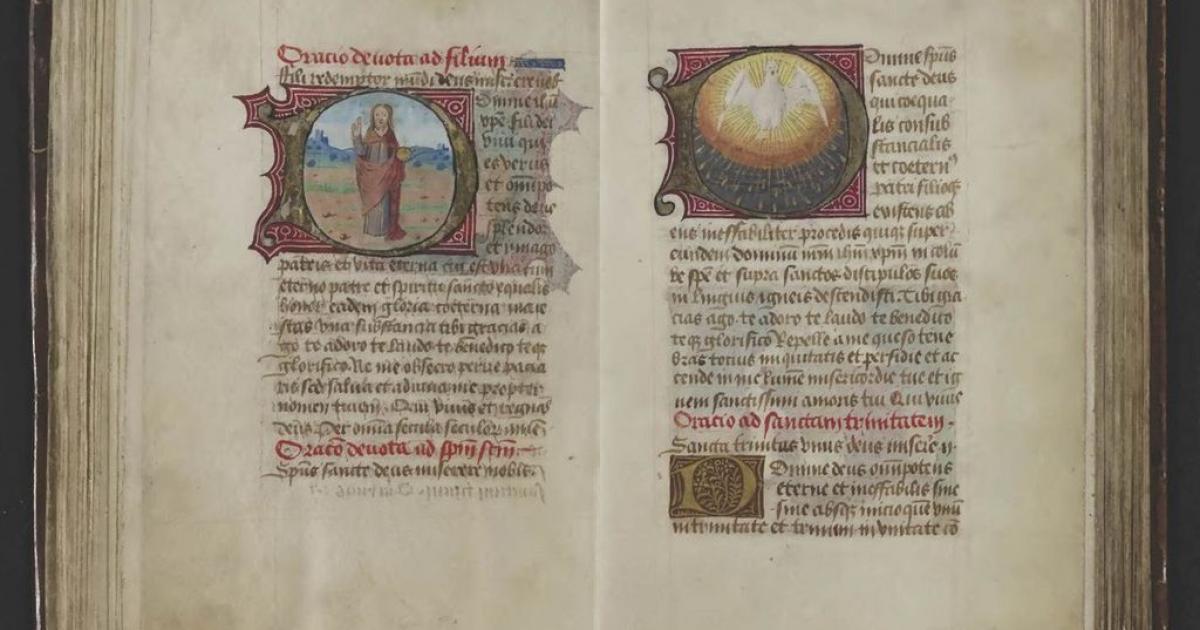 Oracio deuota ad filium
fili redemptor mūdi deus miserere nob
Omine ihu
xpē fili dei
viui qui
es verus
et omīpo
tens deus
splendor
et ymago
patris et vita eterna cui est vna cum
eterno patre et spiritu sancto equalis
honor eadem gloria coeterna maie
stas vna substancia tibi gracias a
go te adoro te laudo te benedico teqz
glorifico. Ne me obsecro perire pacia
ris sed salua et adiuua me propter
nomen tuum. Qui viuis et regnas
deus Per omīa secula seculoꝝ
Oracō deuota ad spm̄ scm̄
Spūs sancte deus miserere nobis.
Omine spūs
sancte deus
qui coequa
lis consub
stancialis
et coeternꝰ
patri filioqz
existens ab
eis ineffabiliter procedis quiqz super
eundem dominū nr̄m ihm̄ xpm̄ in colū
be spē et supra sanctos discipulos suos
in linguis igneis descendisti. Tibi gra
cias ago te adoro te laudo te benedico
teqz glorifico Repelle a me queso tene
bras totius iniquitatis et perfidie et ac
cende in me lumē misericordie tue et ig
nem sanctissimi amoris tui Qui viuis
Oracio ad sanctam trinitatem.
Sancta trinitas vnus deus misere n.
Omine deus omīpotens
eterne et ineffabilis sine
fine absqz inicio quē vnū
in trinitate et trinum in vnitate cō